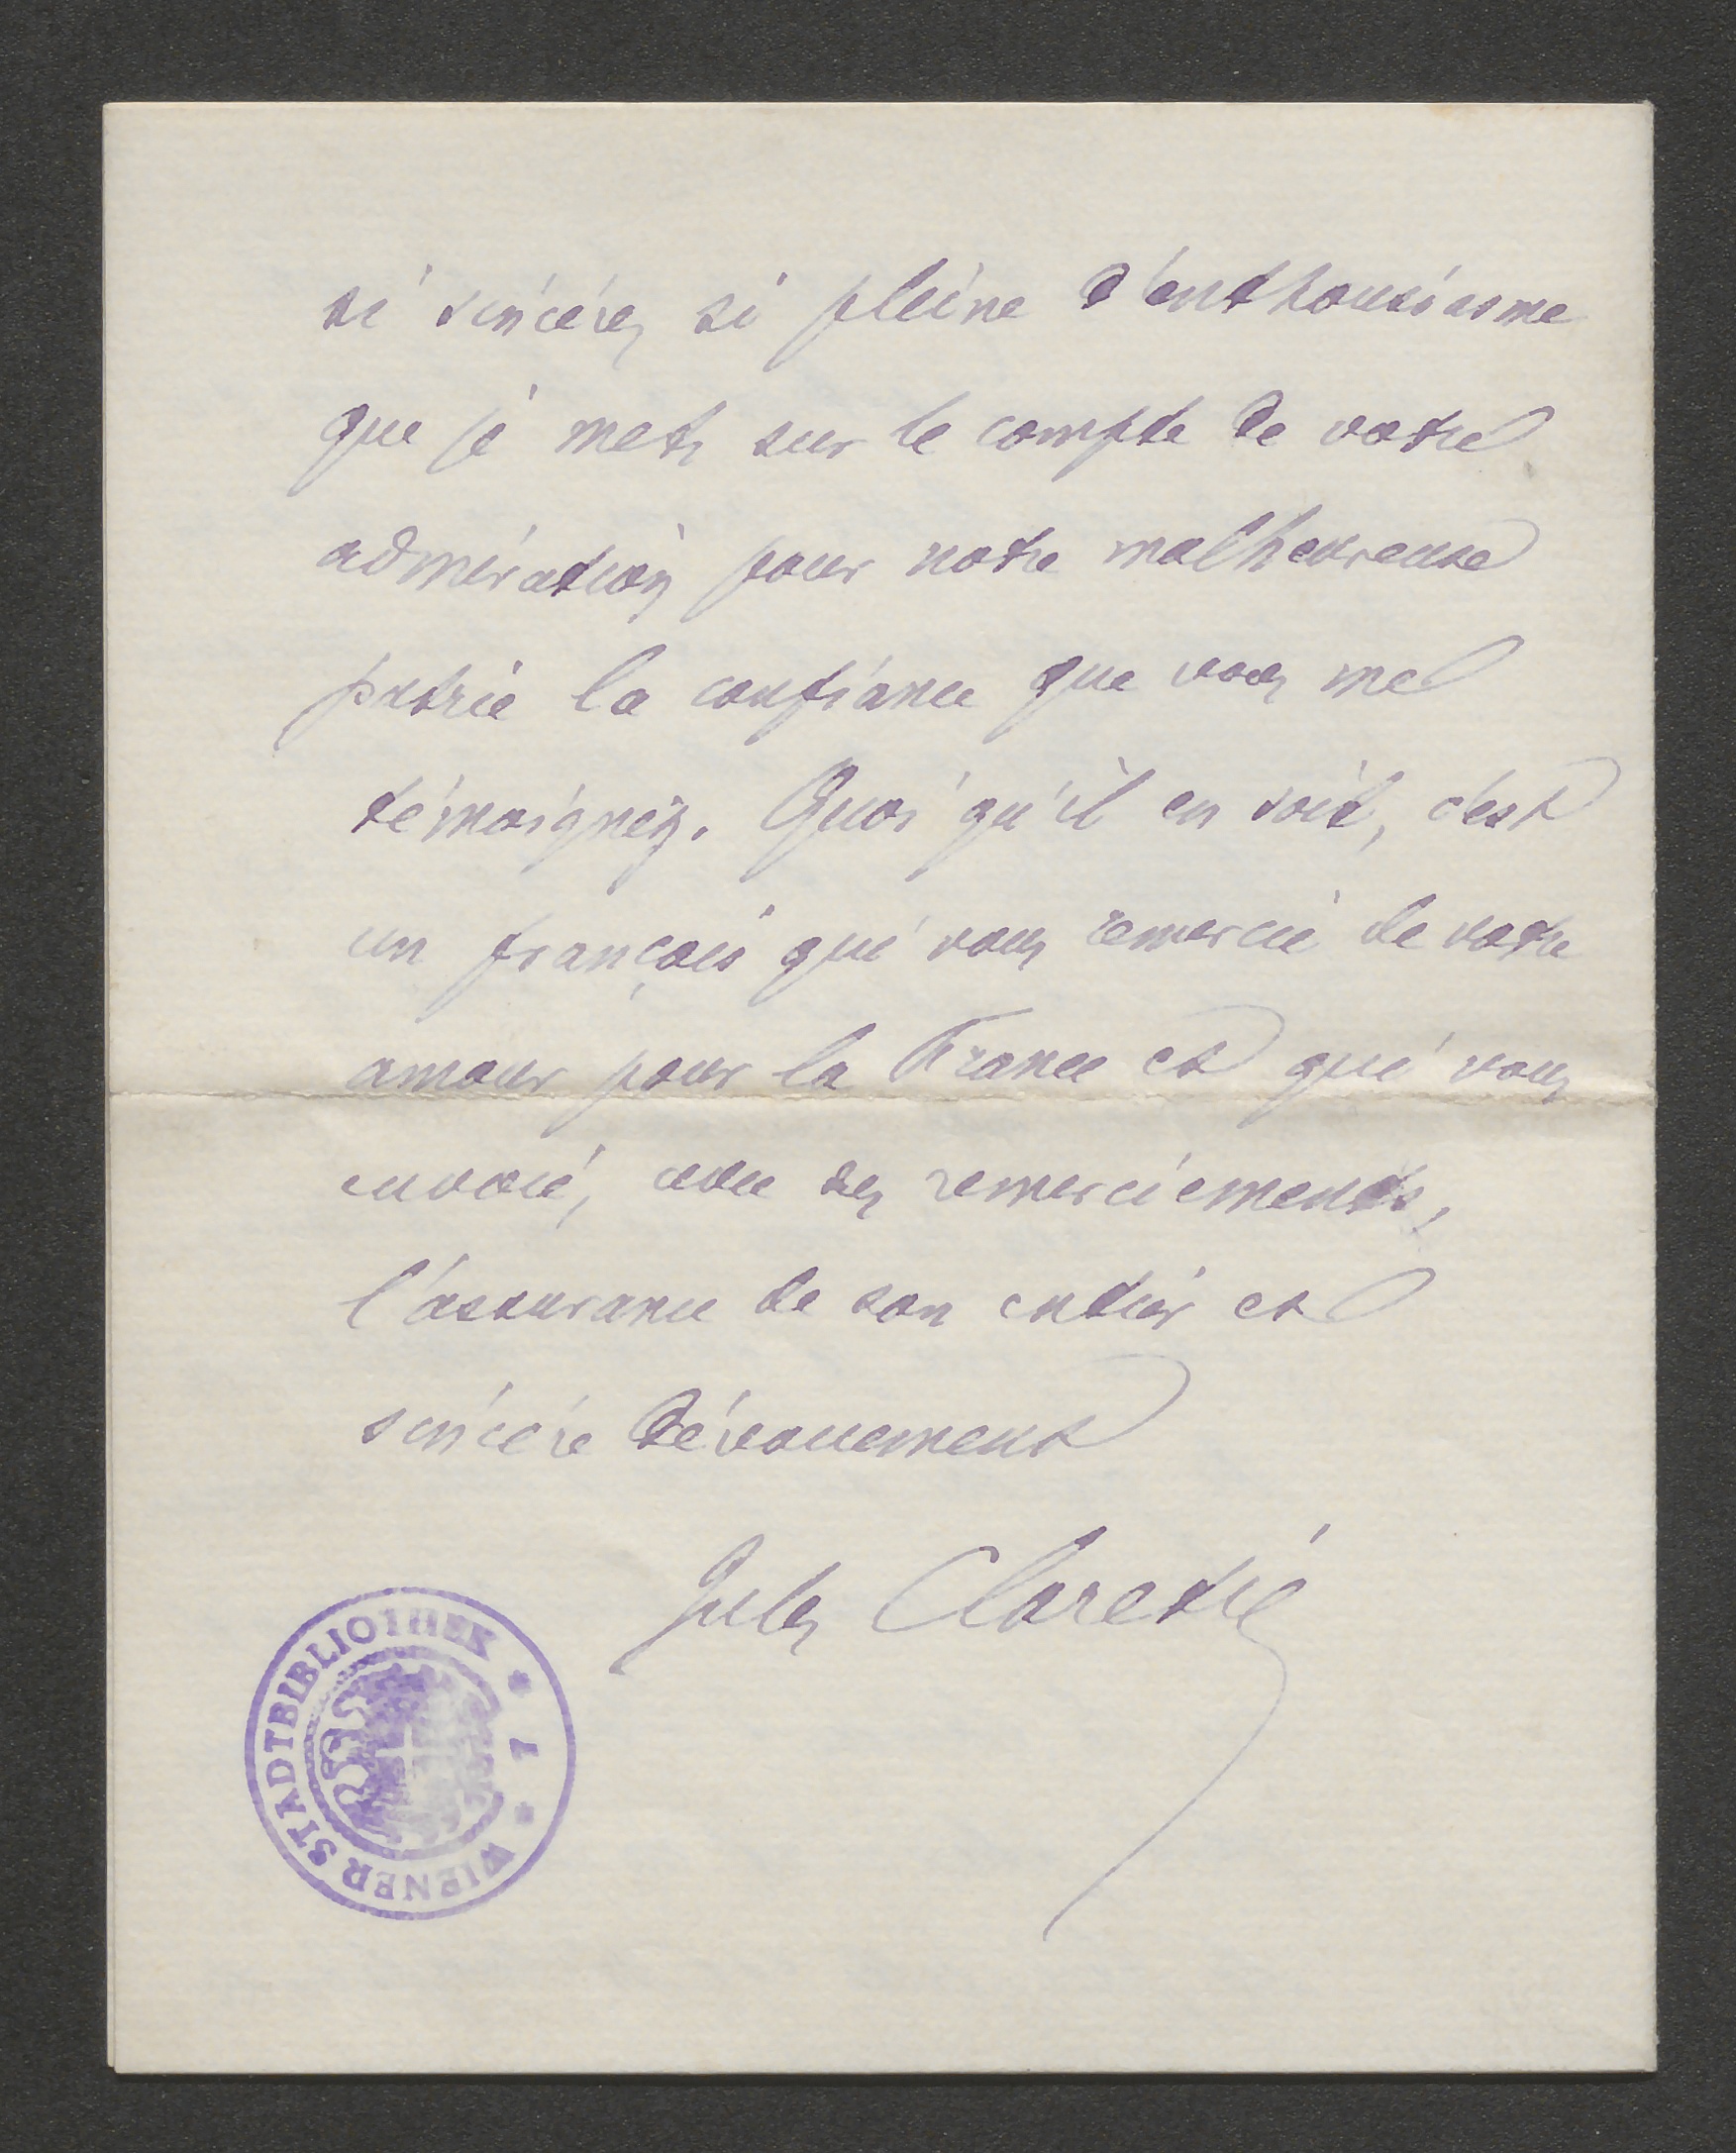 si sincère, si pleine d'enthousiasme
que je mets sur le compte de votre
admiration pour notre malheureuse
patrie la confiance que vous me
témoignez. Quoi qu'il en soit, c'est
un français qui vous remercie de votre
amour pour la France et qui vous
envoie, avec ses remerciements,
l'assurance de son entier et
sincère dévouement
Jules Claretie
WIENER STADTBIBLIOTHEK * 7 *